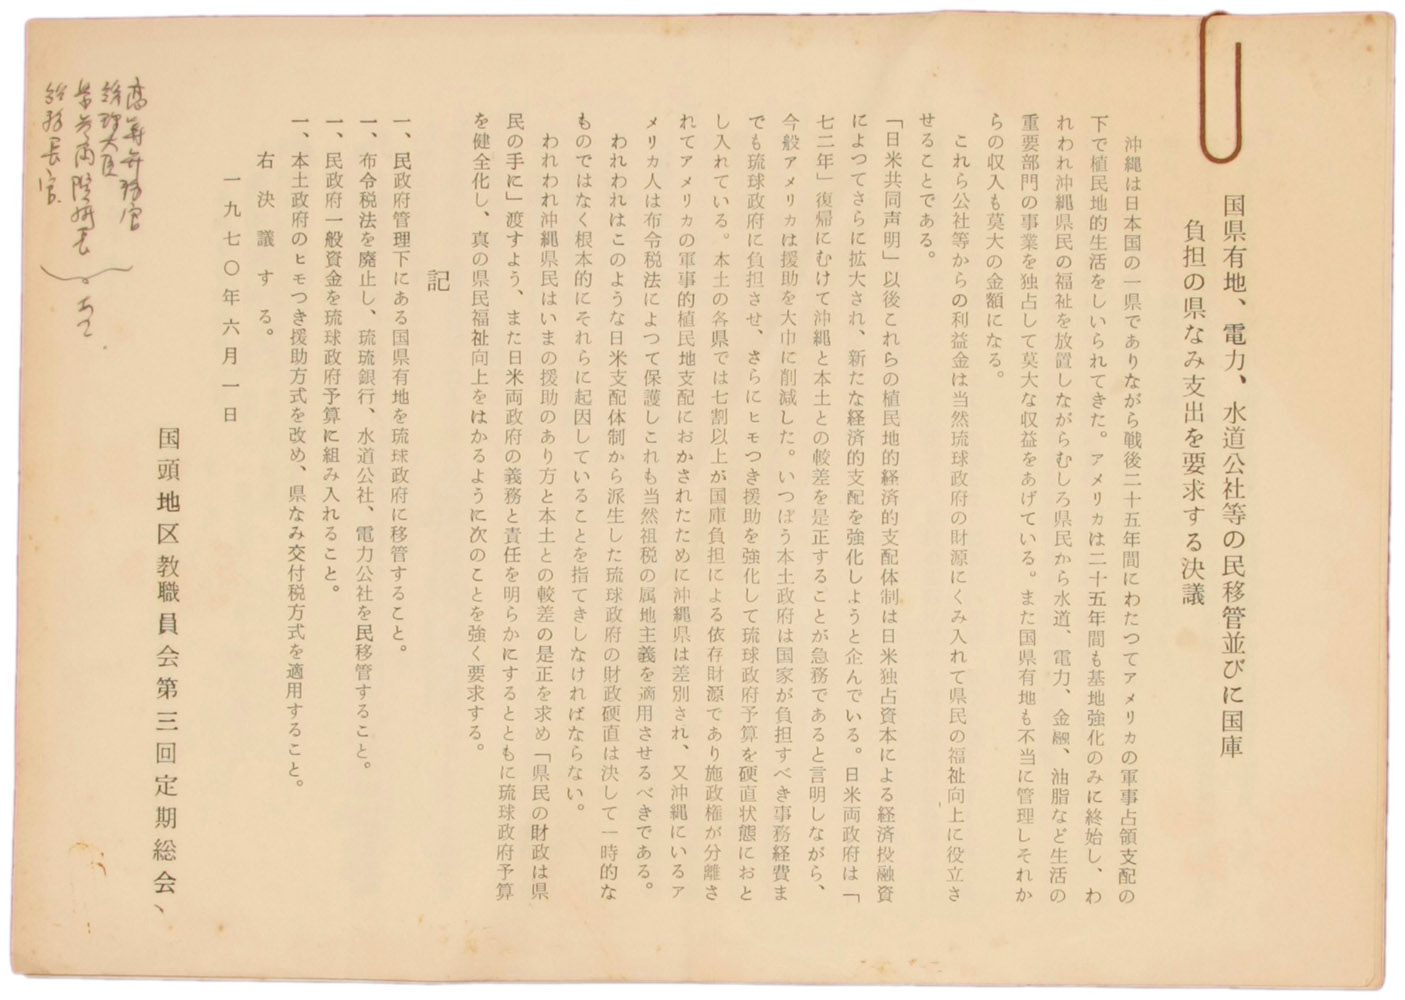 国県有地、電力、水道公社等の民移管並びに国庫
負担の県なみ支出を要求する決議
沖縄は日本国の一県でありながら戦後二十五年間にわたつてアメリカの軍事占領支配の
下で植民地的生活をしいられてきた。アメリカは二十五年間も基地強化のみに終始し、わ
れわれ沖縄県民の福祉を放置しながらむしろ県民から水道、電力、金融、油脂など生活の
重要部門の事業を独占して莫大な収益をあげている。また国県有地も不当に管理しそれか
らの収入も莫大の金額になる。
これら公社等からの利益金は当然琉球政府の財源にくみ入れて県民の福祉向上に役立さ
せることである。
「日米共同声明」以後これらの植民地的経済的支配体制は日米独占資本による経済投融資
によつてさらに拡大され、新たな経済的支配を強化しようと企んでいる。日米両政府は「
七二年」復帰にむけて沖縄と本土との較差を是正することが急務であると言明しながら、
今般アメリカは援助を大巾に削減した。いつぽう本土政府は国家が負担すべき事務経費ま
でも琉球政府に負担させ、さらにヒモつき援助を強化して琉球政府予算を硬直状態におと
し入れている。本土の各県では七割以上が国庫負担による依存財源であり施政権が分離さ
れてアメリカの軍事的植民地支配におかされたために沖縄県は差別され、又沖縄にいるア
メリカ人は布令税法によつて保護しこれも当然祖税の属地主義を適用させるべきである。
われわれはこのような日米支配体制から派生した琉球政府の財政硬直は決して一時的な
ものではなく根本的にそれらに起因していることを指てきしなければならない。
われわれ沖縄県民はいまの援助のあり方と本土との較差の是正を求め「県民の財政は県
民の手に」渡すよう、また日米両政府の義務と責任を明らかにするとともに琉球政府予算
を健全化し、真の県民福祉向上をはかるように次のことを強く要求する。
記
一、民政府管理下にある国県有地を琉球政府に移管すること。
一、布令税法を廃止し、琉琉銀行、水道公社、電力公社を民移管すること。
一、民政府一般資金を琉球政府予算に組み入れること。
一、本土政府のヒモつき援助方式を改め、県なみ交付税方式を適用すること。
右決議する。
一九七〇年六月一日
国頭地区教職員会第三回定期総会、
高等弁務官
総理大臣
衆参両院議長
総務長官
あて